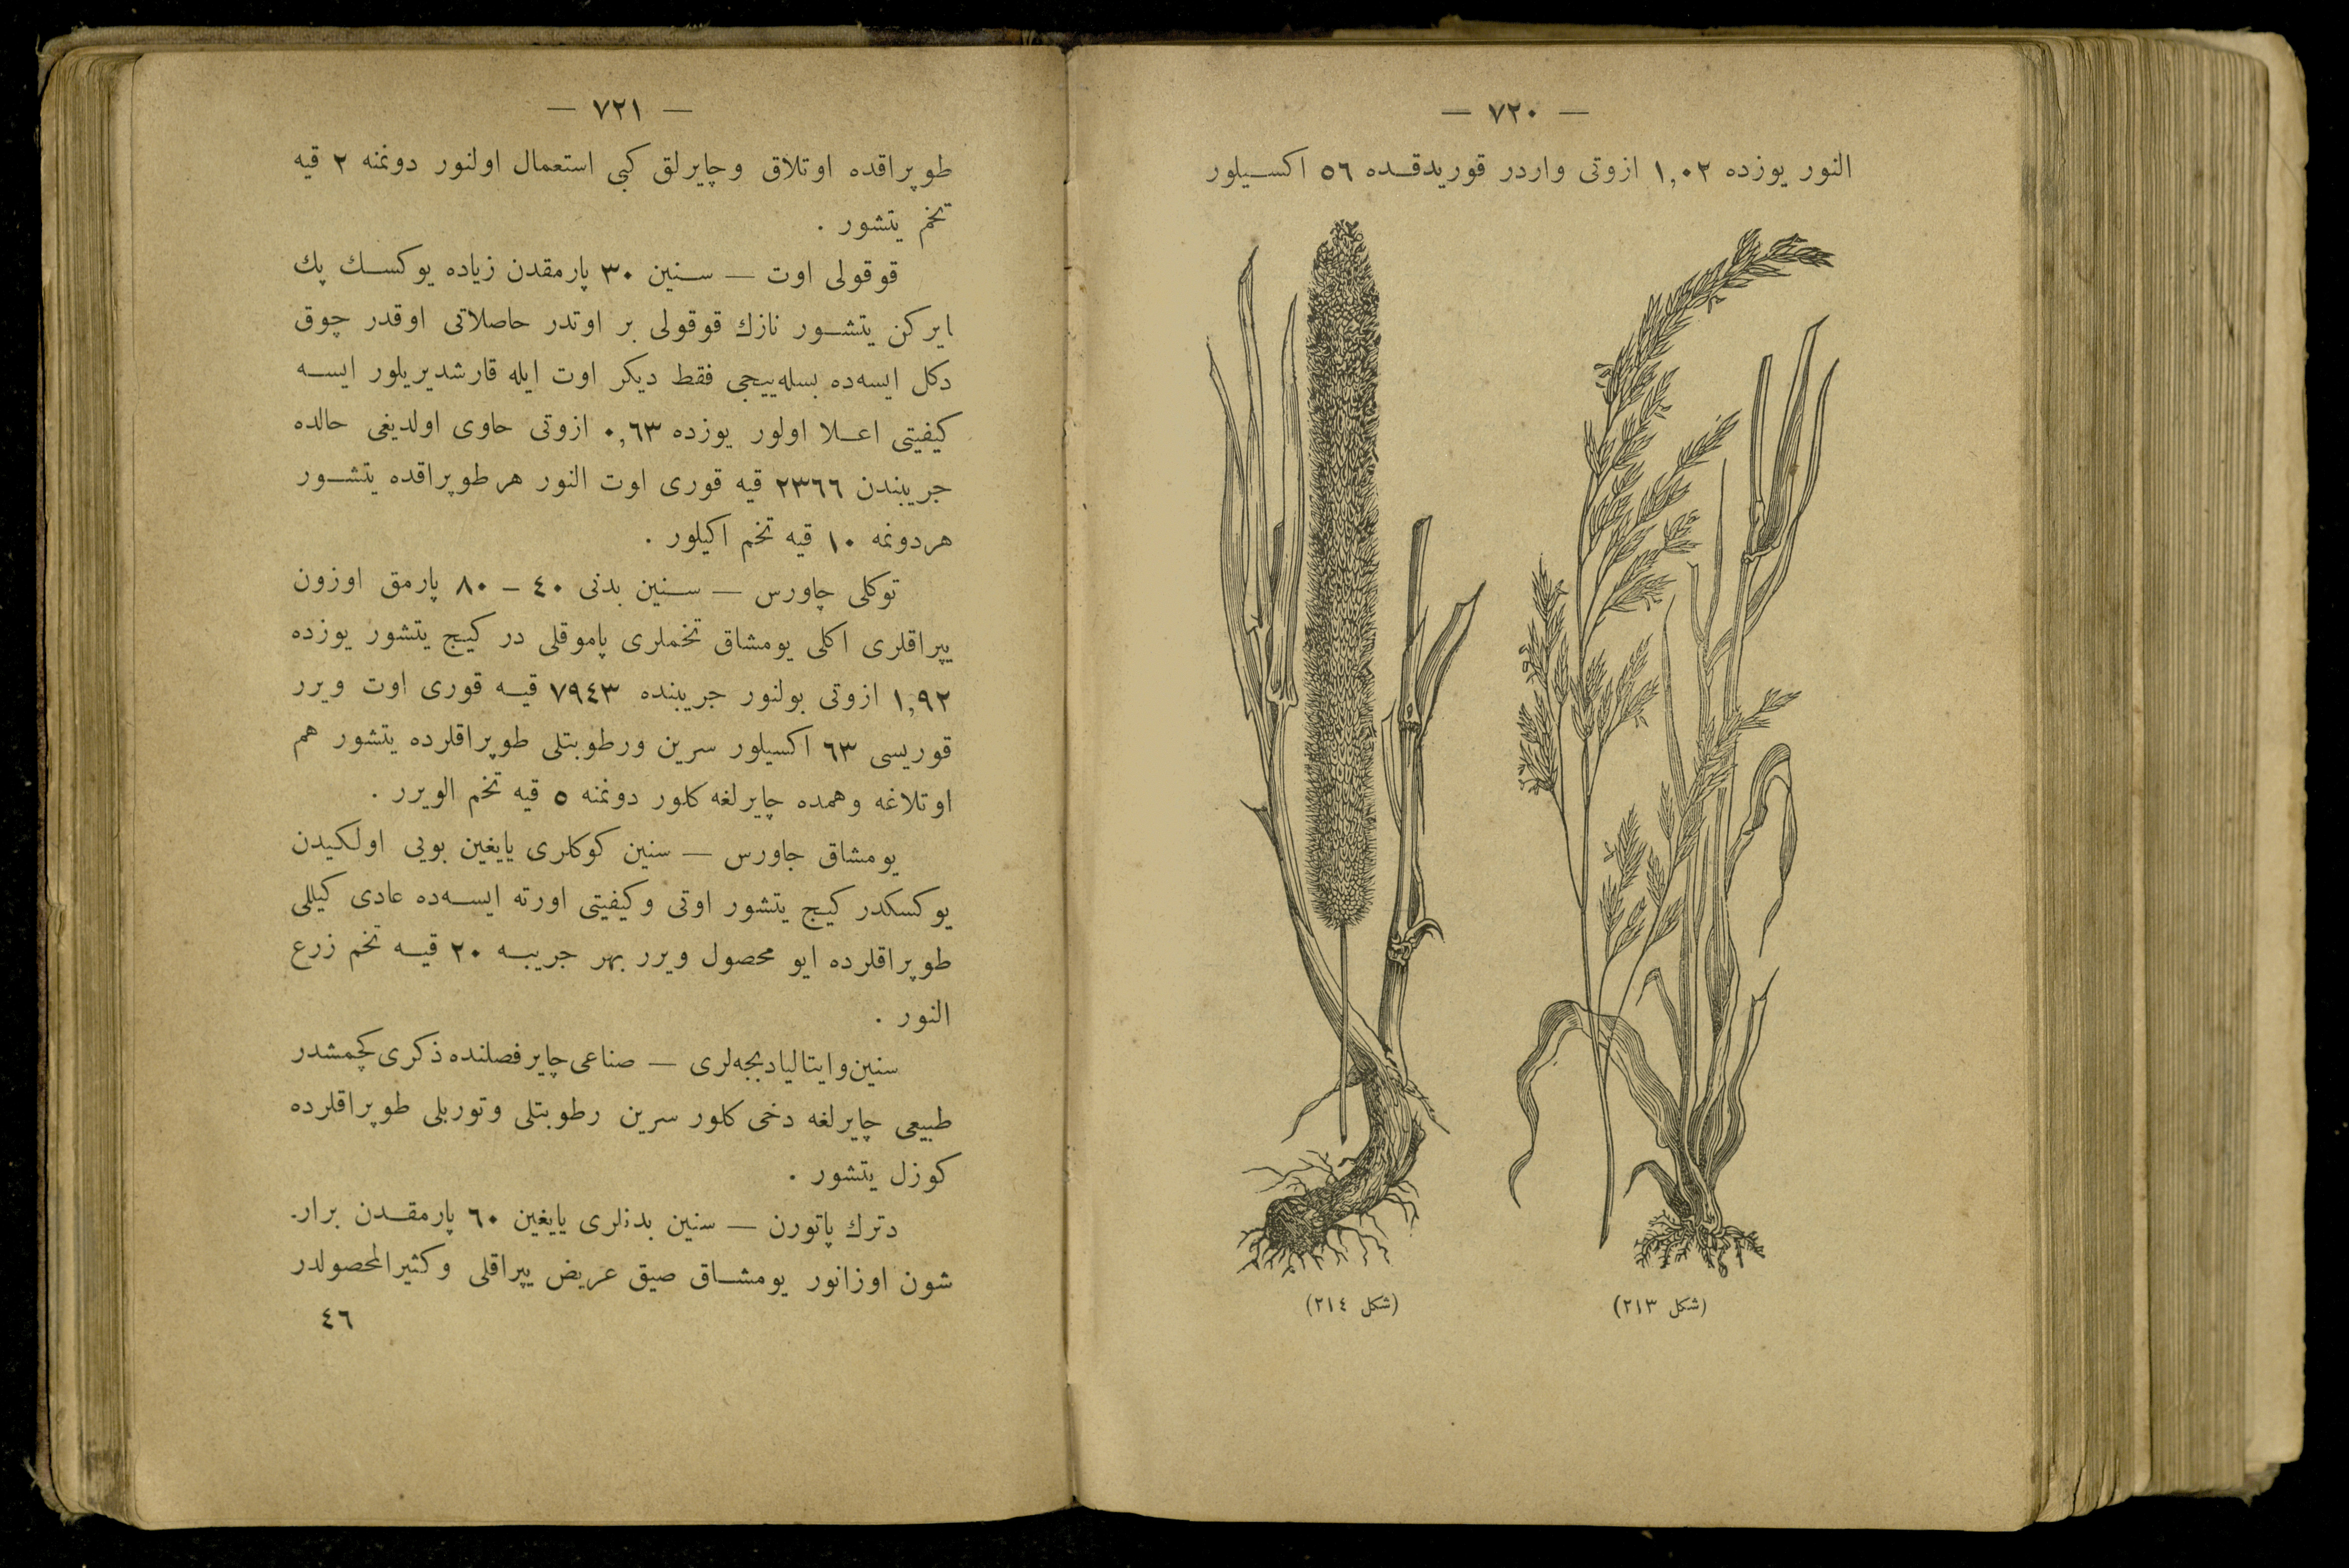 — ٧٢٠ —
النور یوزده ١,٠٢ ازوتی واردر قوریدقـده ٥٦ اکسـیلور
(شکل ٢١٣)
(شکل ٢١٤)
— ٧٢١ —
طوپراقده اوتلاق وچایرلق کبی استعمال اولنور دونمنه ٢ قیه
تخم یتشور .
قوقولی اوت — سـنین ٣٠ پارمقدن زیاده یوکسـك پك
ایرکن یتشـور نازك قوقولی بر اوتدر حاصلاتی اوقدر چوق
دکل ایسه‌ده بسله‌ییجی فقط دیکر اوت ایله قارشدیریلور ایسـه
کیفیتی اعـلا اولور یوزده ٠,٦٣ ازوتی حاوی اولدیغی حالده
جریبندن ٢٣٦٦ قیه قوری اوت النور هر طوپراقده یتشـور
هردونمه ١٠ قیه تخم اکیلور .
توکلی چاورس — سـنین بدنی ٤٠ - ٨٠ پارمق اوزون
یپراقلری اکلی یومشاق تخملری پاموقلی در کیج یتشور یوزده
١,٩٢ ازوتی بولنور جریبنده ٧٩٤٣ قیـه قوری اوت ویرر
قوریسی ٦٣ اکسیلور سرین ورطوبتلی طوپراقلرده یتشور هم
اوتلاغه وهمده چایرلغه کلور دونمنه ٥ قیه تخم الویرر .
یومشاق جاورس — سنین کوکلری یایغین بویی اولکیدن
یوکسکدر کیج یتشور اوتی وکیفیتی اورته ایسـه‌ده عادی کیللی
طوپراقلرده ایو محصول ویرر بهر جریبـه ٢٠ قیـه تخم زرع
النور .
سنین وایتالیا دیجه‌لری — صناعی چایر فصلنده ذکری کچمشدر
طبیعی چایرلغه دخی کلور سرین رطوبتلی وتوربلی طوپراقلرده
کوزل یتشور .
دترك پاتورن — سنین بدنلری یایغین ٦٠ پارمقـدن برار-
شون اوزانور یومشـاق صیق عریض یپراقلی وکثیرالمحصولدر
٤٦